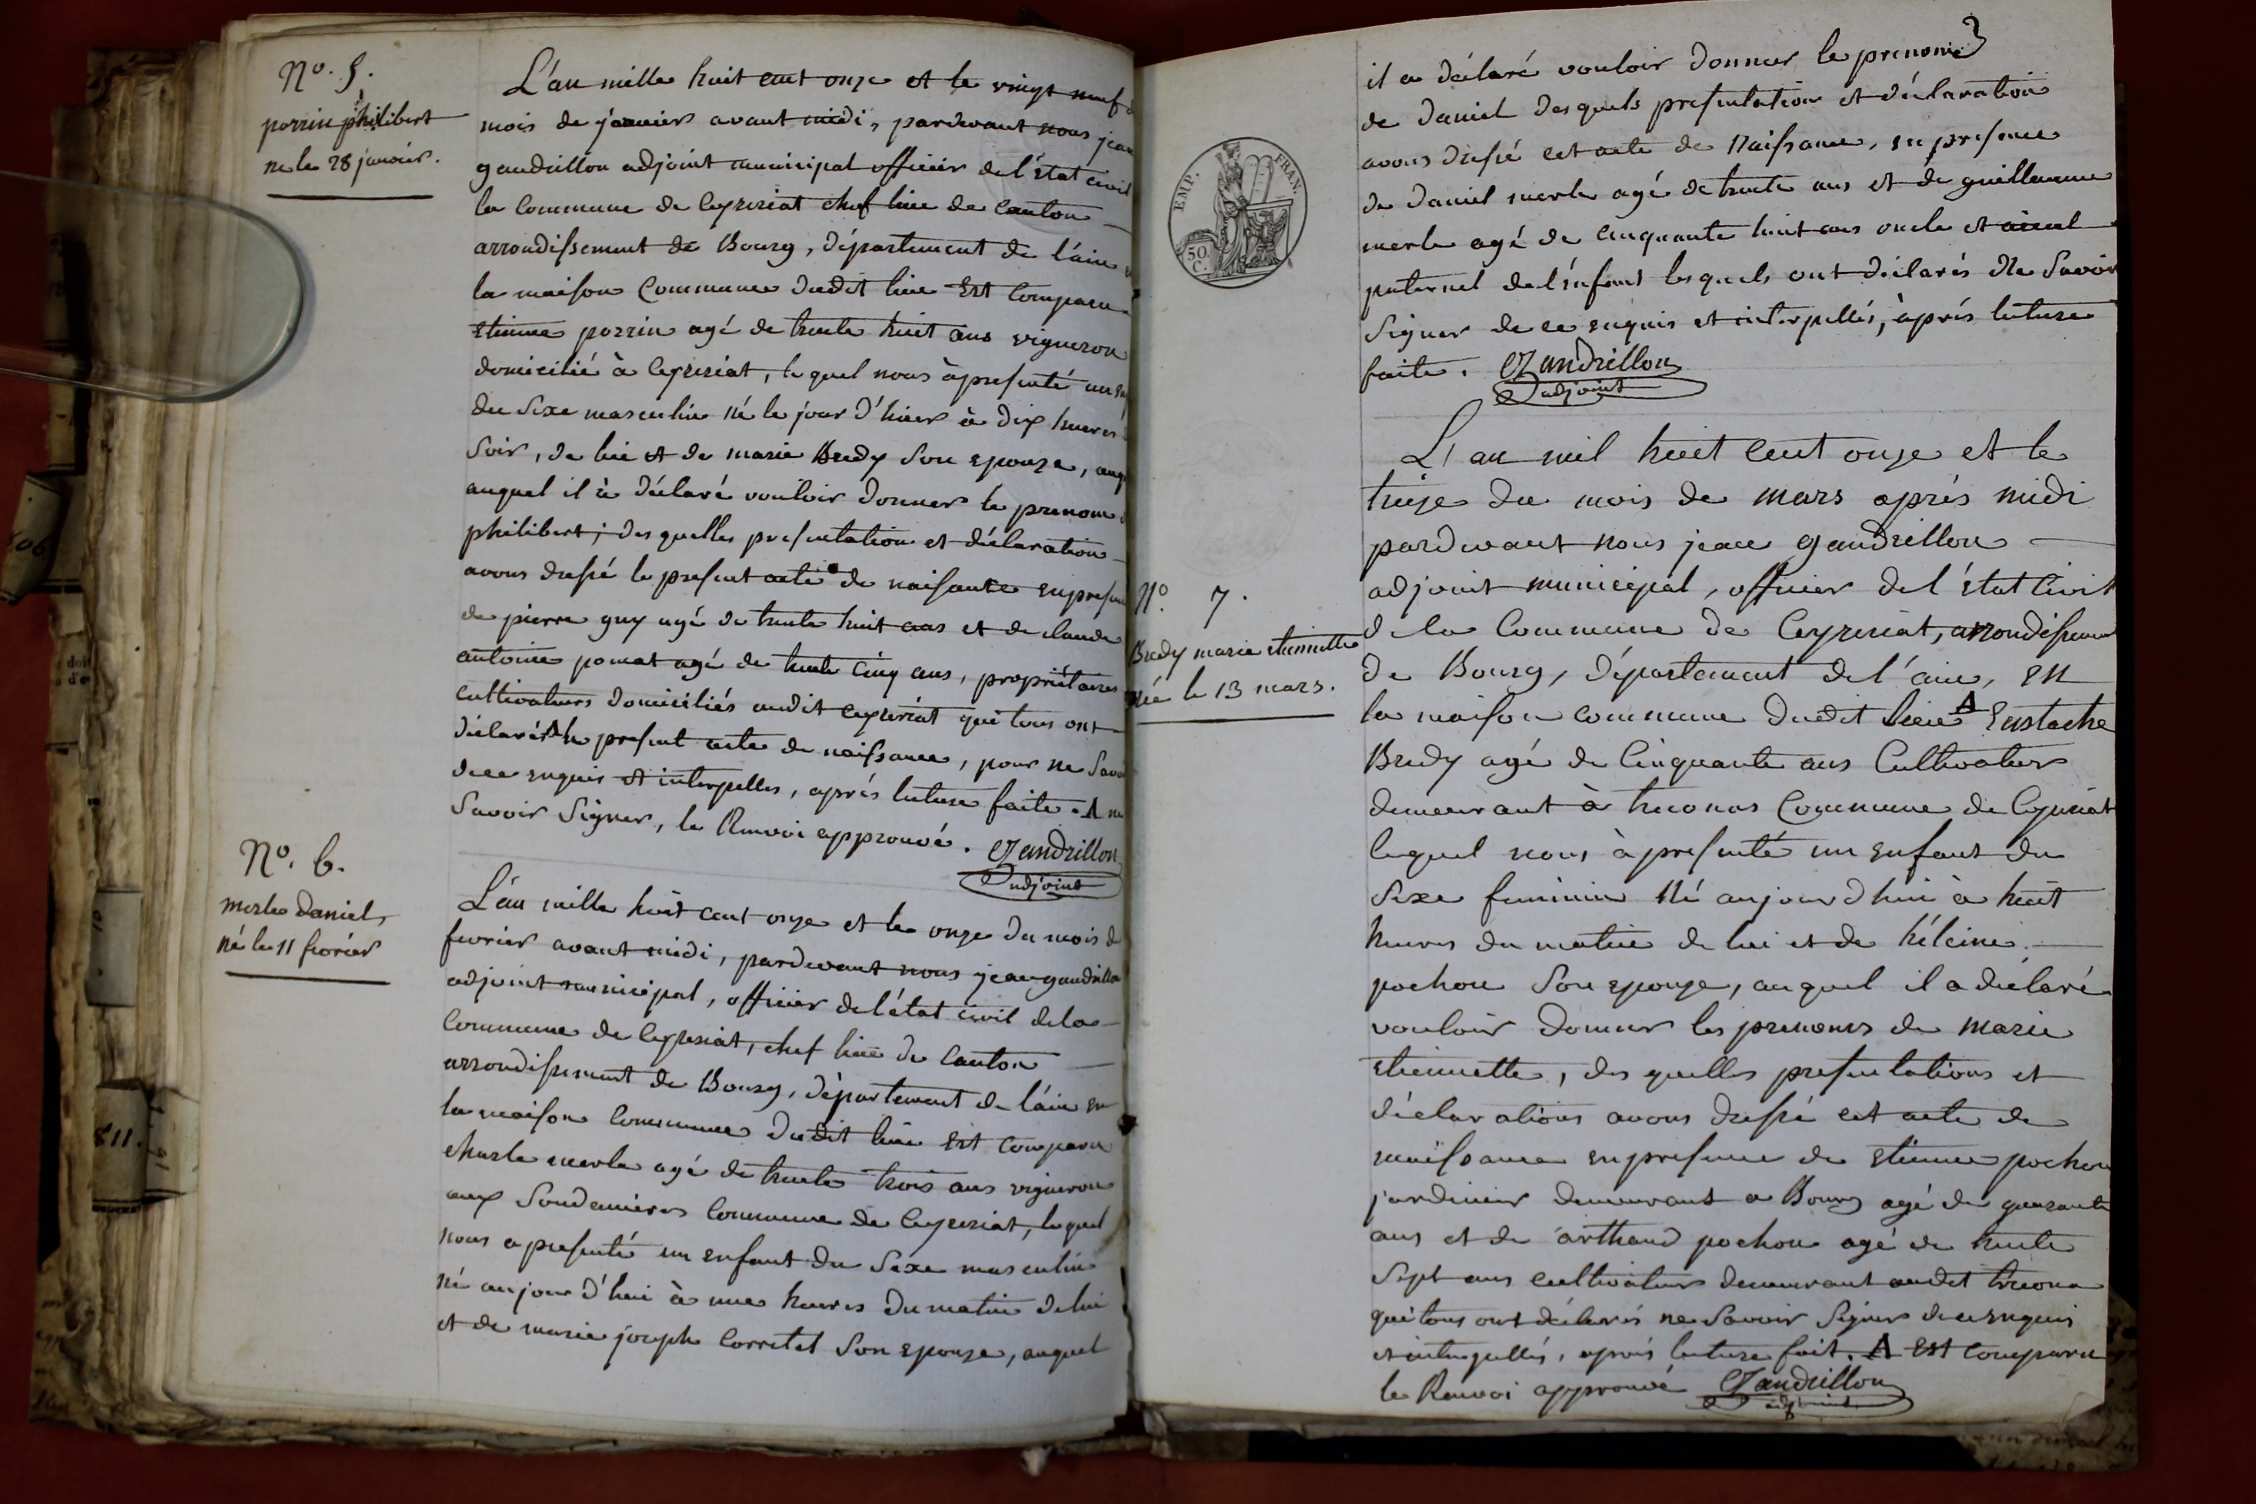 No. 5.
perrin philibert
né le 28 janvier.
L'an mille huit cent onze et le vingt neuf
mois de janvier avant midi, pardevant nous jean
gandrillon adjoint municipal officier de l'état civil
la commune de Ceyzeriat chef lieu de canton
arrondissement de Bourg, département de l'ain
la maison Commune dudit lieu Est Comparu
Etienne perrin agé de trente huit ans vigneron
domicilié à Ceyzeriat, lequel nous à presenté un
du Sexe masculin né le jour d'hier à dix heures
Soir, de lui et de marie Bredy Son epouze,
auquel il à déclaré vouloir donner le prenom
philibert; des quelles presentation et déclaration
avons dressé le present acte de naissance en
de pierre guy agé de trente huit ans et de claude
antoine pomat agé de trente cinq ans, propriétaires
cultivateurs domiciliés audit ceyzeriat qui tous ont
déclarés Λ le present acte de naissance, pour ne
de ce enquis et interpellés, après lecture faite. Λ ne
Savoir Signer, le Renvoi approuvé. Gandrillon
adjoint
No. 6.
merle Daniel,
né le 11 fevrier
L'an mille huit cent onze et le onze du mois de
fevrier avant midi, pardevant nous jean gandrillon
adjoint municipal, officier de l'état civil de la
Commune de Ceyzeriat, chef lieu de Canton
arrondissement de Bourg, département de l'ain en
la maison Commune dudit lieu Est Comparu
charle merle agé de trente trois ans vigneron
aux Soudannieres Commune de Ceyzeriat, lequel
nous a presenté un enfant du Sexe masculin
né aujourd'hui à une heures du matin de lui
et de marie joseph Corretel Son epouze, auquel
EMP. FRAN.
50.
C.
il a déclaré vouloir donner le prenom
de daniel des quels presentation et déclaration
avons dressé cet acte de Naissance, en presence
de daniel merle agé de trente ans et de guillaume
merle agé de cinquante huit ans oncle et aieul
paternel de l'enfant lesquels ont déclarés Ne Savoir
Signer de ce enquis et interpellés, après lecture
faite. Gandrillon
adjoint
No. 7.
Bredy marie etiennette
née le 13 mars.
L'an mil huit cent onze et le
treize du mois de mars après midi
pardevant nous jean gandrillon
adjoint municipal, officier de l'état Civil
de la Commune de Ceyzeriat, arrondissement
de Bourg, département de l'ain, en
la maison commune dudit lieu Λ Eustache
Bredy agé de Cinquante ans Cultivateur
demeurant à treconas Commune de Ceyzeriat
lequel nous à presenté un enfant du
Sexe feminin Né aujourd'hui à huit
heures du matin de lui et de héleine
pochon Son epouze, auquel il a déclaré
vouloir donner les prenoms de marie
etiennette, des quelles presentations et
déclarations avons dressé cet acte de
naissance en presence de etienne pochon
jardinier demeurant a Bourg agé de quarante
ans et de arthaud pochon agé de trente
Sept ans cultivateur demeurant audit
qui tous ont déclarés ne Savoir Signer de ce enquis
et interpellés, après lecture fait. Λ Est Comparu
le Renvoi approuvé Gandrillon
adjoint
811.